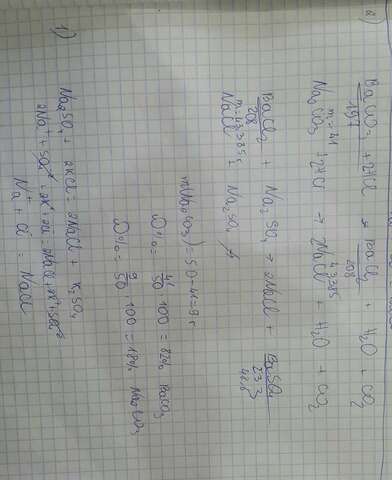 2)
BaCO3 + 2HCl → BaCl2 + H2O + CO2
197 208
m=41 43,285
Na2CO3 + 2HCl → 2NaCl + H2O + CO2
BaCl2 + Na2SO4 → 2NaCl + BaSO4
208 233
NaCl Na2SO4
m(Na2CO3) = 50 - 41 = 9 г
ω% = 41/50 · 100 = 82% BaCO3
ω% = 9/50 · 100 = 18% Na2CO3
1)
Na2SO4 + 2KCl = 2NaCl + K2SO4
Na+ + Cl- = NaCl